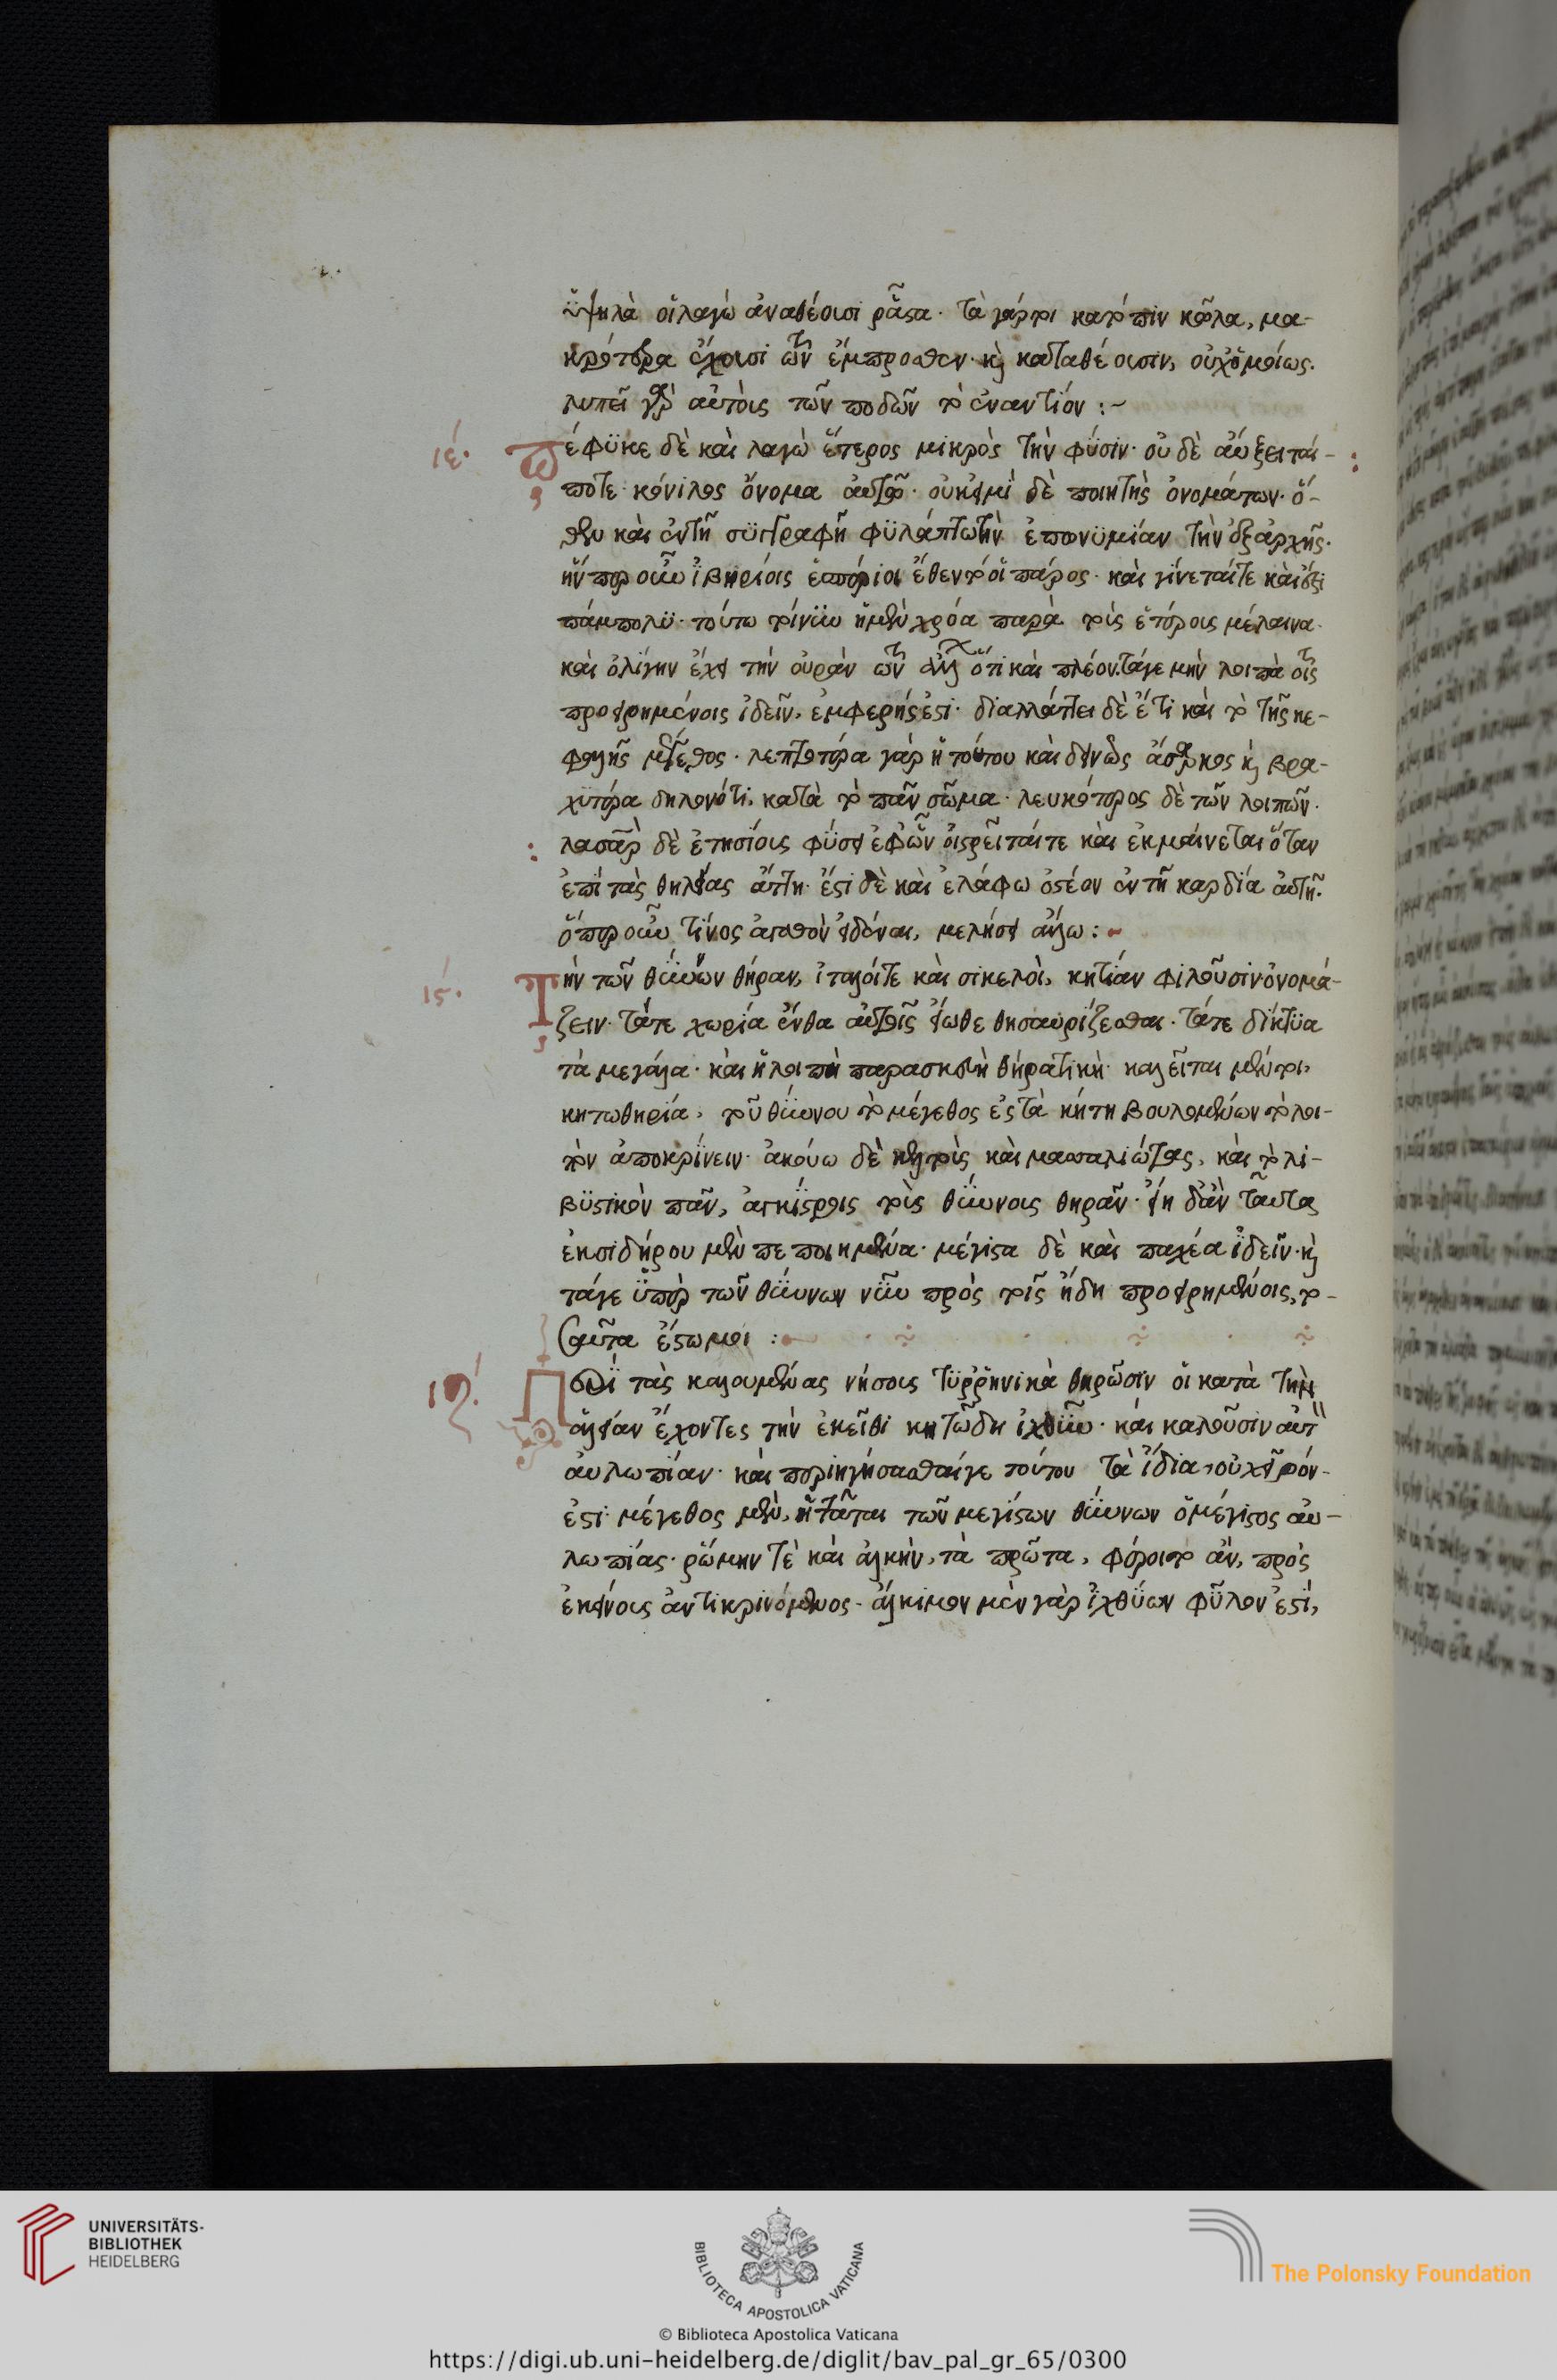 ὑψηλὰ οἱ λαγὼ ἀναθέουσι ῥᾷστα· τὰ γάρ τοι κατόπιν κῶλα, μα-
κρότερα ἔχουσι τῶν ἔμπροσθεν· καὶ καταθέουσιν, οὐχ ὁμοίως.
λυπεῖ γὰρ αὐτοὺς τῶν ποδῶν τὸ ἐναντίον :~
ιε΄. Πέφυκε δὲ καὶ λαγὼ ἕτερος μικρὸς τὴν φύσιν· οὐδὲ αὔξεταί-
ποτε· κόνιλος ὄνομα αὐτῷ· οὐκ εἰμὶ δὲ ποιητὴς ὀνομάτων· ὅ-
θεν καὶ ἐν τῇ συγγραφῇ φυλάττω τὴν ἐπωνυμίαν τὴν ἐξ ἀρχῆς·
ἥνπερ οὖν ἴβηρίοις ἑσπέριοι ἔθεντό οἱ πάρος· καὶ γίνεταί τε καὶ ἔστι
πάμπολυ· τούτῳ τοίνυν ἡ μὲν χρόα παρὰ τοὺς ἑτέρους μέλαινα·
καὶ ὀλίγην ἔχει τὴν οὐρὰν ὅτι καὶ πλέον. τά γε μὴν λοιπὰ τοῖς
προειρημένοις ἰδεῖν, ἐμφερής ἐστι· διαλλάττει δὲ ἔτι καὶ τὸ τῆς κε-
φαλῆς μέγεθος· λεπτοτέρα γὰρ ἡ τούτου καὶ δεινῶς ἄσαρκος καὶ βρα-
χυτέρα δηλονότι, κατὰ τὸ πᾶν σῶμα· λευκότερος δὲ τῶν λοιπῶν·
δὲ ἐτησίοις φύσει ἐφ' ὧν οἰστρεῖταί τε καὶ ἐκμαίνεται ὅταν
ἐπὶ τὰς θηλείας ἄττῃ· ἔστι δὲ καὶ ἐλάφω ὀστέον ἐν τῇ καρδίᾳ αὐτῇ·
ὅπερ οὖν τίνος ἀγαθὸν εἰδέναι, μελήσει ἄλλω :~
ις΄. Τὴν τῶν θύννων θήραν, ἰταλοί τε καὶ σικελοὶ, κητίαν φιλοῦσιν ὀνομά-
ζειν· τά τε χωρία ἔνθα αὐτοῖς εἴωθε θησαυρίζεσθαι· τά τε δίκτυα
τὰ μεγάλα· καὶ ἡ λοιπὴ παρασκευὴ θηρατικὴ· καλεῖται μέν τοι,
κητωθηρία, τοῦ θύννου τὸ μέγεθος ἐς τὰ κήτη βουλομένων τὸ λοι-
πὸν ἀποκρίνειν· ἀκούω δὲ τοὺς καὶ μασσαλιώτας, καὶ τὸ λι-
βυστικὸν πᾶν, ἀγκίστροις τοὺς θύννους θηρᾶν· εἴη δ' ἂν ταῦτα
ἐκ σιδήρου μὲν πεποιημένα· μέγιστα δὲ καὶ παχέα ἰδεῖν· καὶ
τά γε ὑπὲρ τῶν θύννων νῦν πρὸς τοῖς ἤδη προειρημένοις, το-
σαῦτα ἔστω μοι :
ιζ΄. Περὶ τὰς καλουμένας νήσους τυρρηνικὰ θηρῶσιν οἱ κατὰ τὴν
ἁλείαν ἔχοντες τὴν ἐκεῖθι κητώδη ἰχθῦν· καὶ καλοῦσιν αὐτ
αὐλωπίαν· καὶ περιηγήσασθαί γε τούτου τὰ ἴδια, οὐ χεῖρόν-
ἐστι· μέγεθος μὲν, ἡττᾶται τῶν μεγίστων θύννων ὁ μέγιστος αὐ-
λωπίας· ῥώμην τὲ καὶ ἀλκὴν, τὰ πρῶτα, φέροιτο ἂν, πρὸς
ἐκείνους ἀντικρινόμενος· ἄλκιμον μὲν γὰρ ἰχθύων φῦλον ἐστὶ,
UNIVERSITÄTS-
BIBLIOTHEK
HEIDELBERG
BIBLIOTECA APOSTOLICA VATICANA
The Polonsky Foundation
© Biblioteca Apostolica Vaticana
https://digi.ub.uni-heidelberg.de/diglit/bav_pal_gr_65/0300